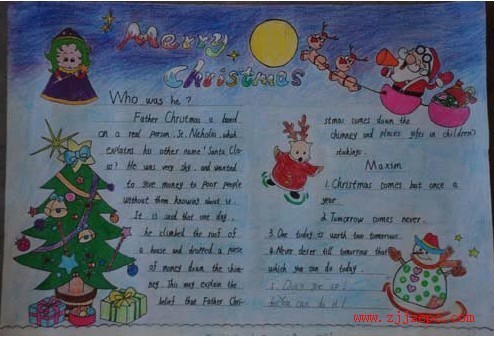 Merry
Christmas
Who was he?
Father Christmas is based
on a real person, St. Nicholas, which
explains his other name 'Santa Cla-
us'? He was very shy and wanted
to give money to poor people
without them knowing about it.
It is said that one day,
he climbed the roof of
a house and dropped a purse
of money down the chim-
ney. This may explain the
belief that Father Chri-
stmas comes down the
chimney and places gifts in children's
stockings.
Maxim
1. Christmas comes but once a
year.
2. Tomorrow comes never.
3. One today is worth two tomorrows.
4. Never defer till tomorrow that
which you can do today.
5. Don't give up!
6. You can do it!